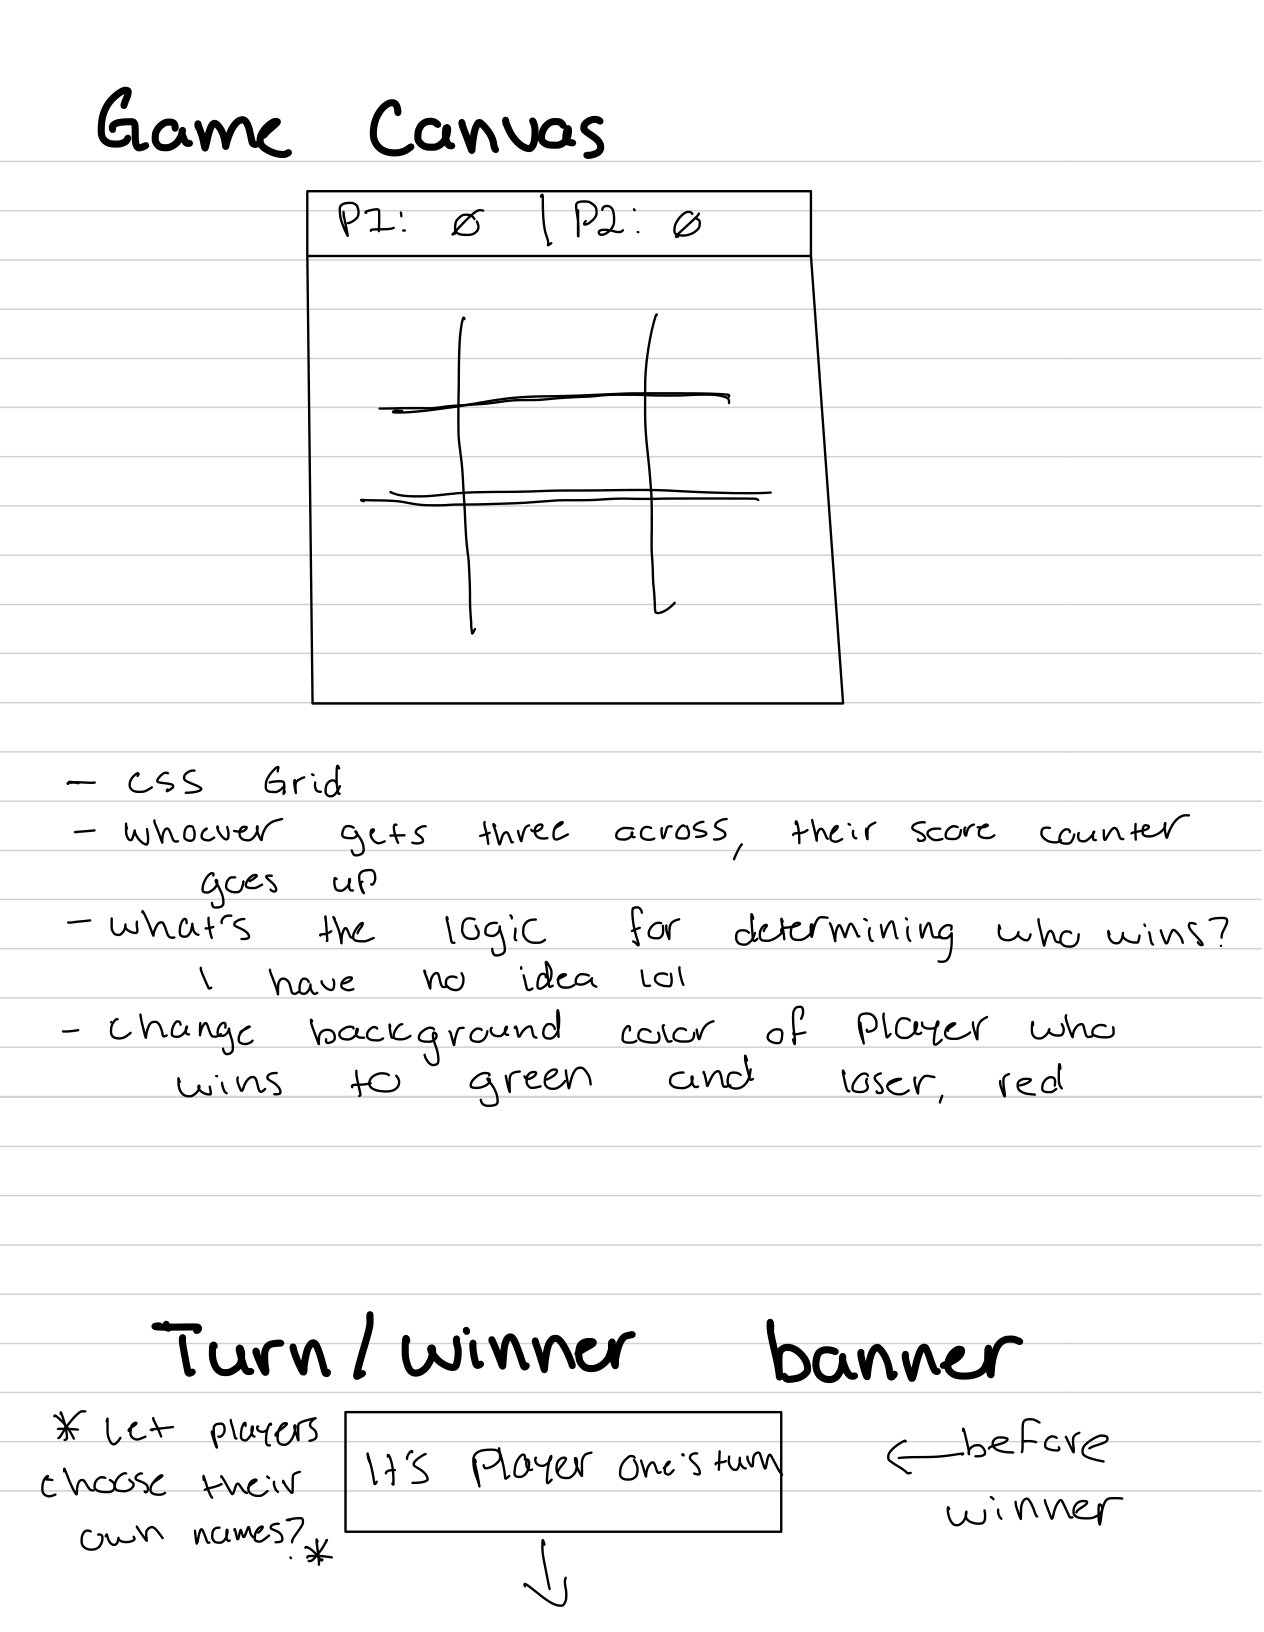 Game Canvas
P1: 0 | P2: 0
- CSS Grid
- whoever gets three across, their score counter
goes up
- what's the logic for determining who wins?
I have no idea lol
- change background color of player who
wins to green and loser, red
Turn/winner banner
* Let players
choose their
own names? *
It's Player one's turn
← before
winner
↓